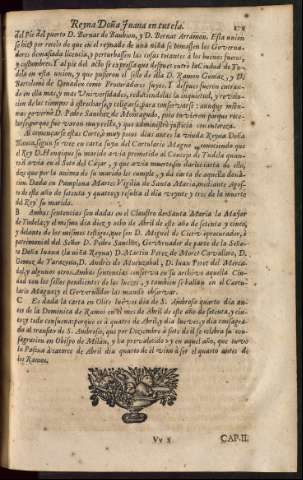 Reyna Doña Juana en tutela.
del Pie del puerto D. Bernat de Baubion, y D. Bernat Arramon. Esta union
se hizo por recelo de que en el reynado de una niña se tomassen los Governa-
dores demasiada licencia, y perturbassen las cosas tocantes à los buenos fueros,
y costumbres. Y al pie del acto se expressa que despues entrò la Ciudad de Tu-
dela en esta union, y que pusieron el sello de ella D. Ramon
Bartolomè de como Procuradores suyos. Y despues fueron entran-
do en ella mas, y mas Universidades,
cion de los tiempos à estrecharse, y coligarse para conservarse: aunque mien-
tras governò D. Pedro Sanchez de Monteagudo, poco tuvieron porque recc-
larse, porque fue varon muy y que administrò justicia con entereza.
Al comenzarse estas Cortes, y pocos dias antes la viuda Reyna Doña
Blanca, segun se vee en carta suya del Cartulario Magno, comunicò que
el Rey D. Henrique su marido avia prometido al Concejo de Tudela quando
avia en el Soto del Cascar, y que avia muerto sin darles carta de ello:
dize que por la anima de su marido les cumple, y dà carta de aquella dona-
cion. Dada en Pamplona Martes Vigilia de Santa Maria, mediante Agos-
to de este año de setenta y quatro, y resulta el dia veynte y tres de la muerte
del Rey su marido.
B Ambas sentencias son dadas en el Claustro de Santa Maria la Mayor
de Tudela, y el mesmo dia diez y ocho de Abril de este año de setenta y cinco,
y delante de los mesmos testigos, que son D. Miguel de procurador del
patrimonial del Señor D. Pedro Sanchez, Governador de parte de la Seño-
ra Doña Juana (la niña Reyna) D. Martin Perez, de Moret Cavallero, D.
Gomez, de Tarazona, D. Andres de Alcalde de Iuan Perez del Merca-
do, y algunos otros. Ambas sentencias conserva en su archivo aquella Ciu-
dad con los sellos pendientes de los Iuezes, y tambien se hallan en el Cartu-
lario Magno; y el Governador las mandò observar.
C Es dada la carta en Olite Iueves dia de S. Ambrosio quarto dia an-
tes de la Dominica de Ramos en el mes de Abril de este año de setenta, y cin-
co; y todo conforma: porque es à quatro de Abril, y dia Iueves, y dia consagra-
do al transito de S. Ambrosio, que por Deziembre à siete de èl se celebra su con-
sagracion en Obispo de Milàn, y ha prevalecido: y en aquel año, que tuvo
la Pasqua à catorce de Abril dia quarto de èl vino à ser el quarto antes de
los Ramos.
Vv 2 CAP. II.